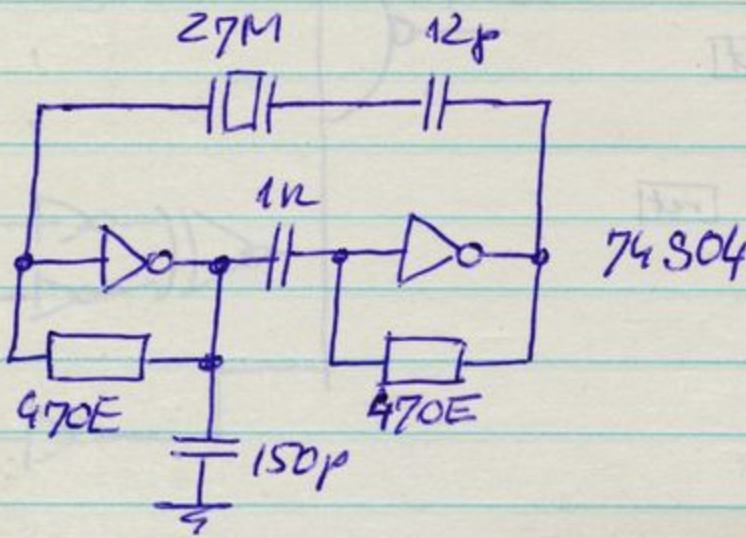 27M 12p
1n
74S04
470E 470E
150p